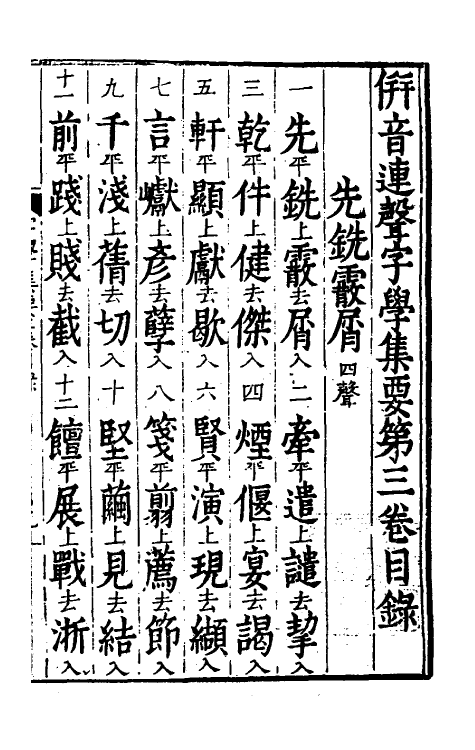 併音連聲字學集要第三卷目錄
先銑霰屑四聲
一先平銑上霰去屑入二牽平遣上譴去挈入
三乾平件上健去傑入四煙平偃上宴去謁入
五軒平顯上獻去歇入六賢平演上現去纈入
七言平巘上彥去孽入八箋平翦上薦去節入
九千平淺上蒨去切入十堅平繭上見去結入
十一前平踐上賤去截入十二饘平展上戰去浙入